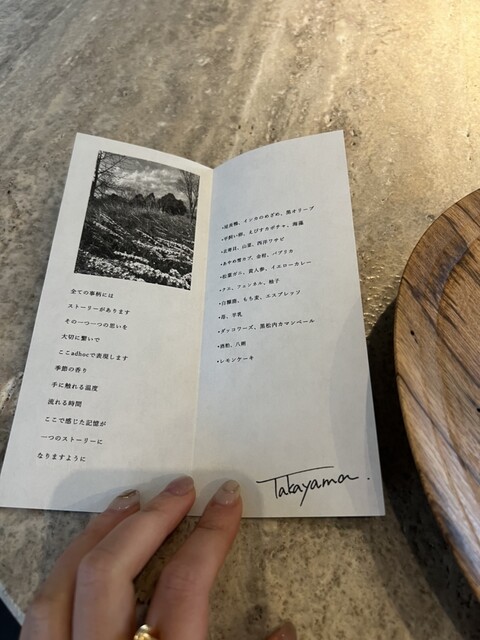 全ての事柄には
ストーリーがあります
その一つ一つの思いを
大切に繋いで
ここadhocで表現します
季節の香り
手に触れる温度
流れる時間
ここで感じた記憶が
一つのストーリーに
なりますように
、インカのめざめ、黒オリーブ
、えびすカボチャ、
、山菜、西洋ワサビ
・あやめ雪カブ、金柑、パプリカ
・松葉ガニ、黄人参、イエローカレー
・クエ、フェンネル、柚子
・白糠鹿、もち麦、エスプレッソ
・苺、羊乳
・ダックワーズ、黒松内カマンベール
・酒粕、八朔
・レモンケーキ
Takayama.